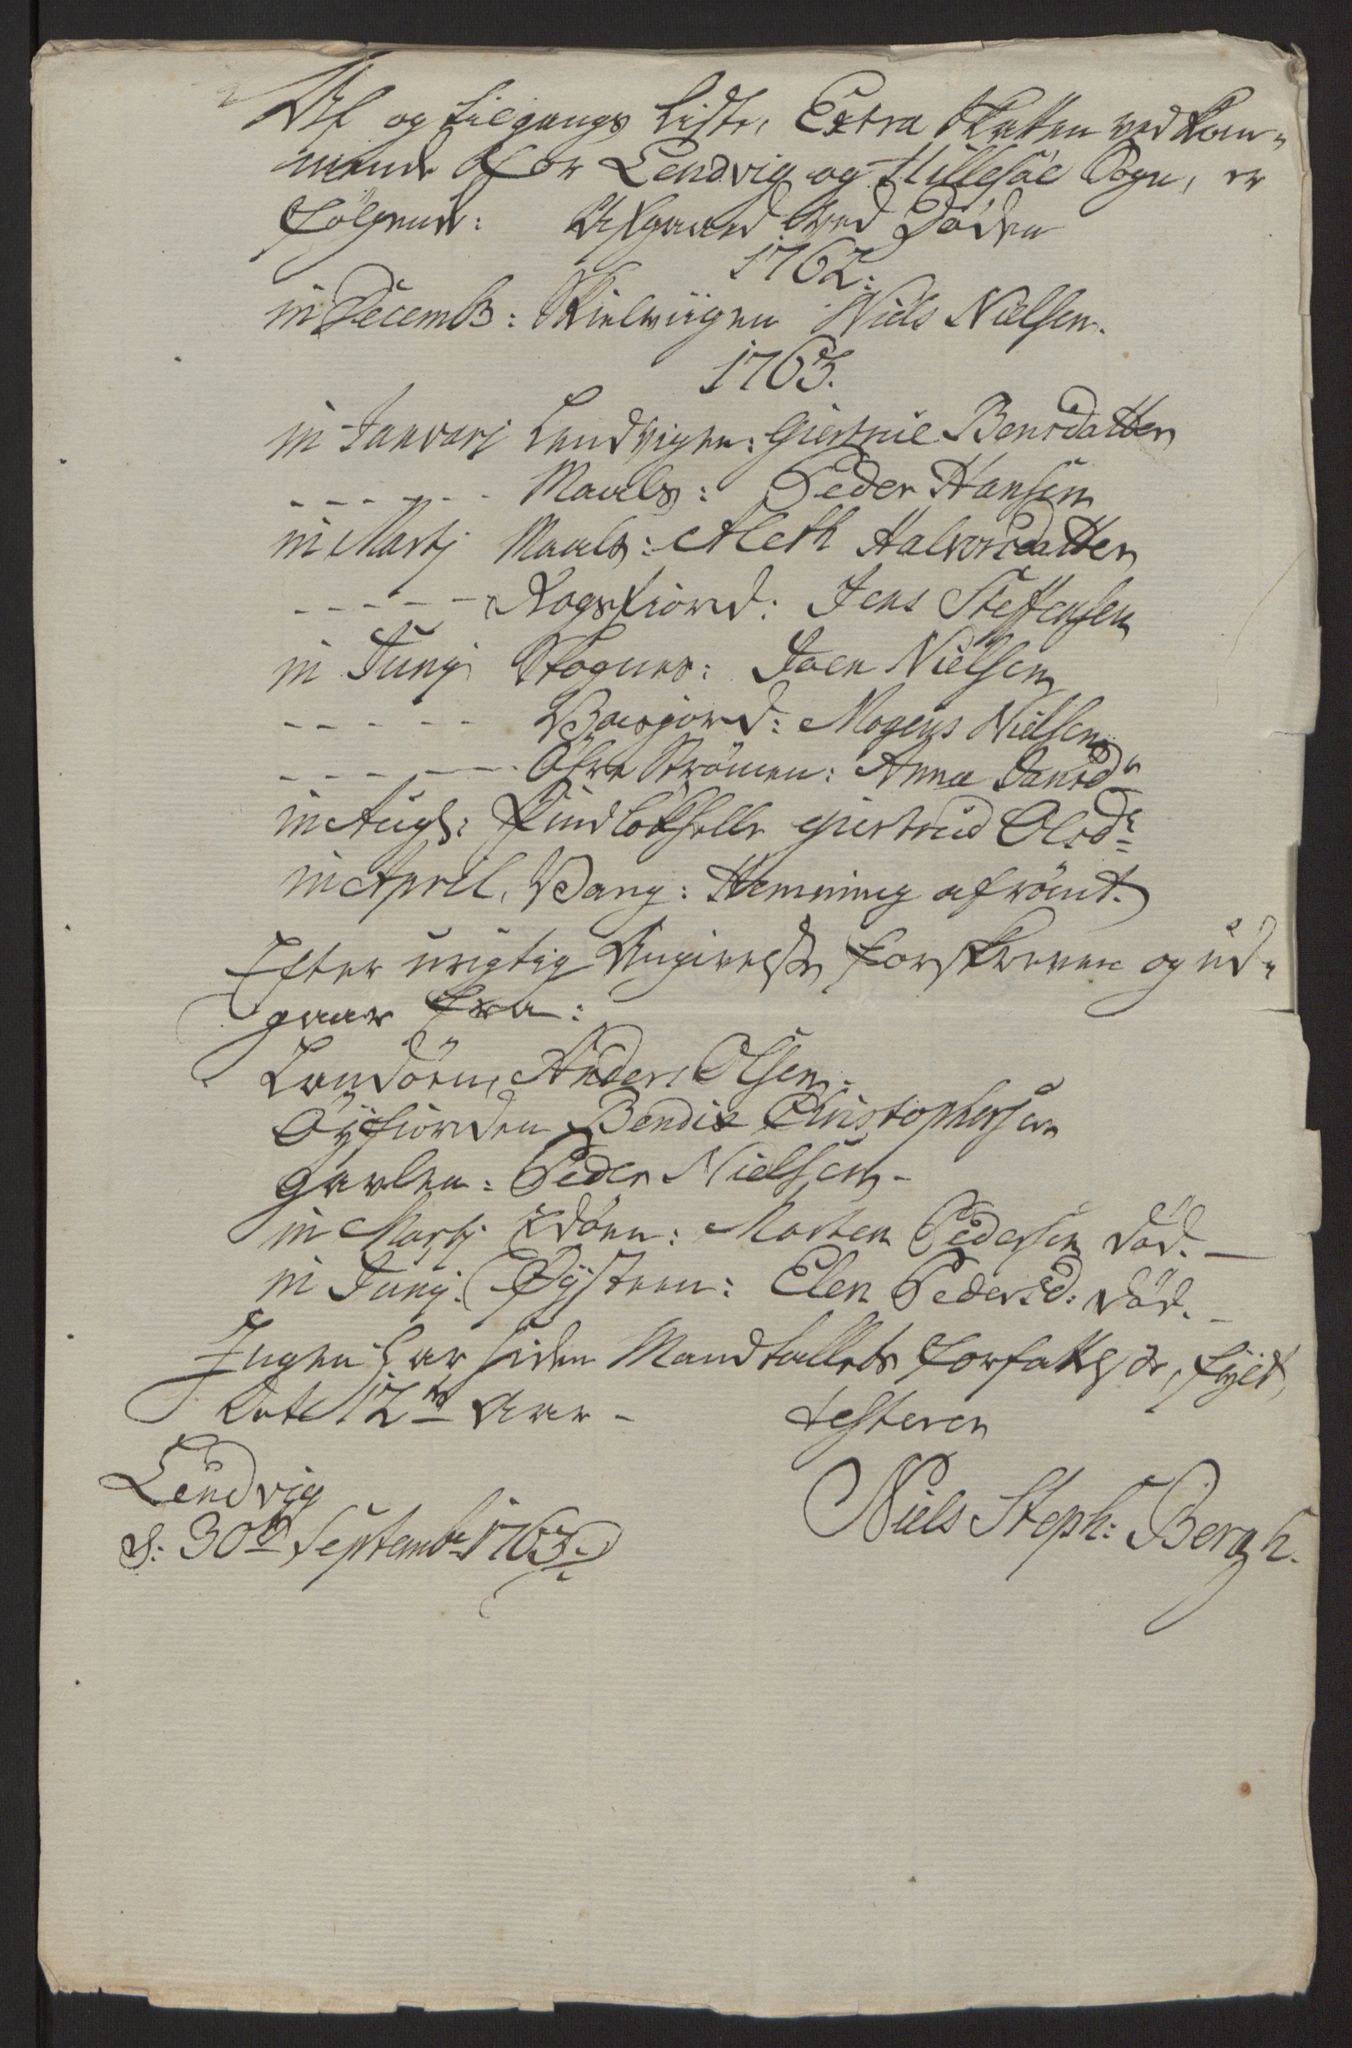 Af og tilgangs Liste, Extra Skatten vedkom-
mende for Lendvig og Hillesöe Sogn, er
følgende: Afgaaed ved Döden
1762:
in Decemb: Skielviigen Niels Nielsen.
1763.
in Januarj Lendvigen: Giertrue Bentsdatter
- - - - - - Maals: Peder Hansen
in Martj Maals: Aleth Halvorsdatter
- - - - - Kogsfiord: Jens Steffensen
in Junj Skognes: Joen Nielsen
- - - - - Bassjord: Mogens Nielsen
- - - - - - Öfre Strömen: Anna Jansdr
in Augs: Findlökhelle Giertrud Olsdr
in April, Vang: Hemming afrömt.
Efter urigtig Angivelse forskreven og ud-
gaar fra:
Landöen, Anders Olsen.
Öÿfiorden Bendix Christophersen
Gaalen: Peder Nielsen -
in Martj Edöen: Morten Pedersen död. -
in Junj: Öÿsteen: Elen Pedersd: död. -
Ingen har siden Mandtallets forfattelse, fyldt
dete 12te Aar - testerer
Lendvig
d: 30te Septembr 1763. Niels Steph: Bergh.